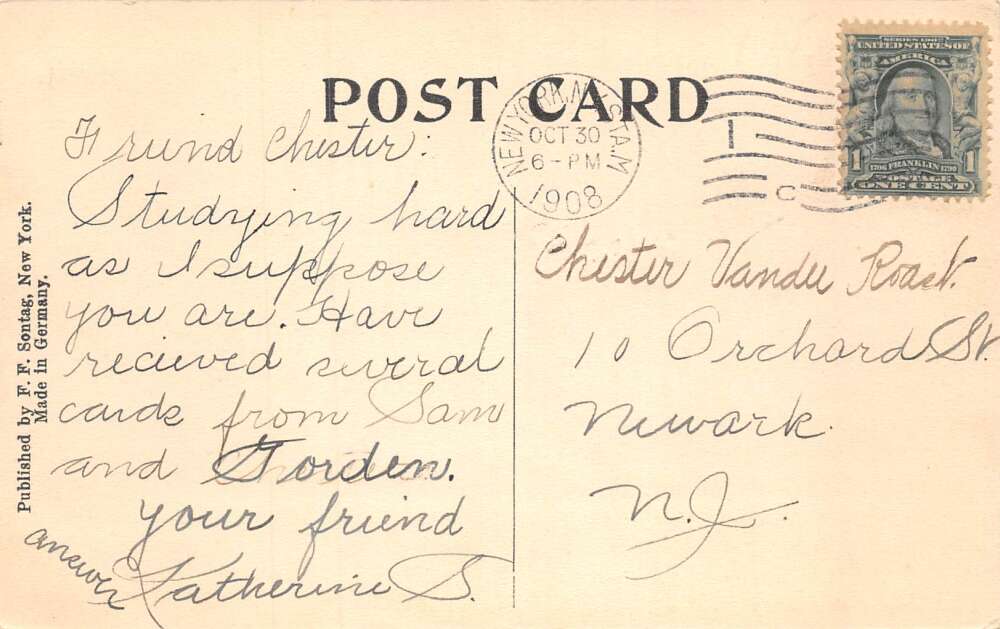 POST CARD
NEW YORK, N.Y. STA. M
OCT 30
6-PM
1908
C
SERIES 1902
UNITED STATES OF
AMERICA
1 1706 FRANKLIN 1790 1
POSTAGE
ONE CENT
Friend Chester:
Studying hard
as I suppose
you are. Have
recieved several
cards from Sam
and Gorden.
your friend
Katherine S.
answer
Chester Vander Roast.
10 Orchard St.
Newark.
N.J.
Published by F. F. Sontag, New York.
Made in Germany.